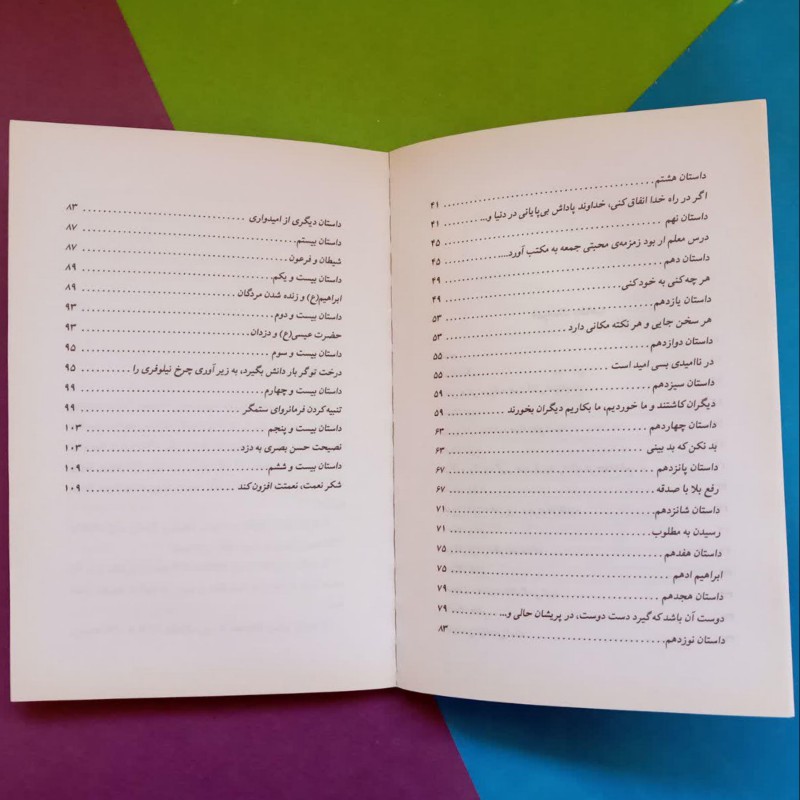 داستان هشتم ۴۱
اگر در راه خدا انفاق کنی، خداوند پاداش بی‌پایانی در دنیا و... ۴۱
داستان نهم ۴۵
درس معلم ار بود زمزمه‌ی محبتی جمعه به مکتب آورد... ۴۵
داستان دهم ۴۹
هر چه کنی به خود کنی ۴۹
داستان یازدهم ۵۳
هر سخن جایی و هر نکته مکانی دارد ۵۳
داستان دوازدهم ۵۵
در ناامیدی بسی امید است ۵۵
داستان سیزدهم ۵۹
دیگران کاشتند و ما خوردیم، ما بکاریم دیگران بخورند ۵۹
داستان چهاردهم ۶۳
بد نکن که بد بینی ۶۳
داستان پانزدهم ۶۷
رفع بلا با صدقه ۶۷
داستان شانزدهم ۷۱
رسیدن به مطلوب ۷۱
داستان هفدهم ۷۵
ابراهیم ادهم ۷۵
داستان هجدهم ۷۹
دوست آن باشد که گیرد دست دوست، در پریشان حالی و... ۷۹
داستان نوزدهم ۸۳
داستان دیگری از امیدواری ۸۳
داستان بیستم ۸۷
شیطان و فرعون ۸۷
داستان بیست و یکم ۸۹
ابراهیم(ع) و زنده شدن مردگان ۸۹
داستان بیست و دوم ۹۳
حضرت عیسی(ع) و دزدان ۹۳
داستان بیست و سوم ۹۵
درخت توگر بار دانش بگیرد، به زیر آوری چرخ نیلوفری را ۹۵
داستان بیست و چهارم ۹۹
تنبیه کردن فرمانروای ستمگر ۹۹
داستان بیست و پنجم ۱۰۳
نصیحت حسن بصری به دزد ۱۰۳
داستان بیست و ششم ۱۰۹
شکر نعمت، نعمتت افزون کند ۱۰۹